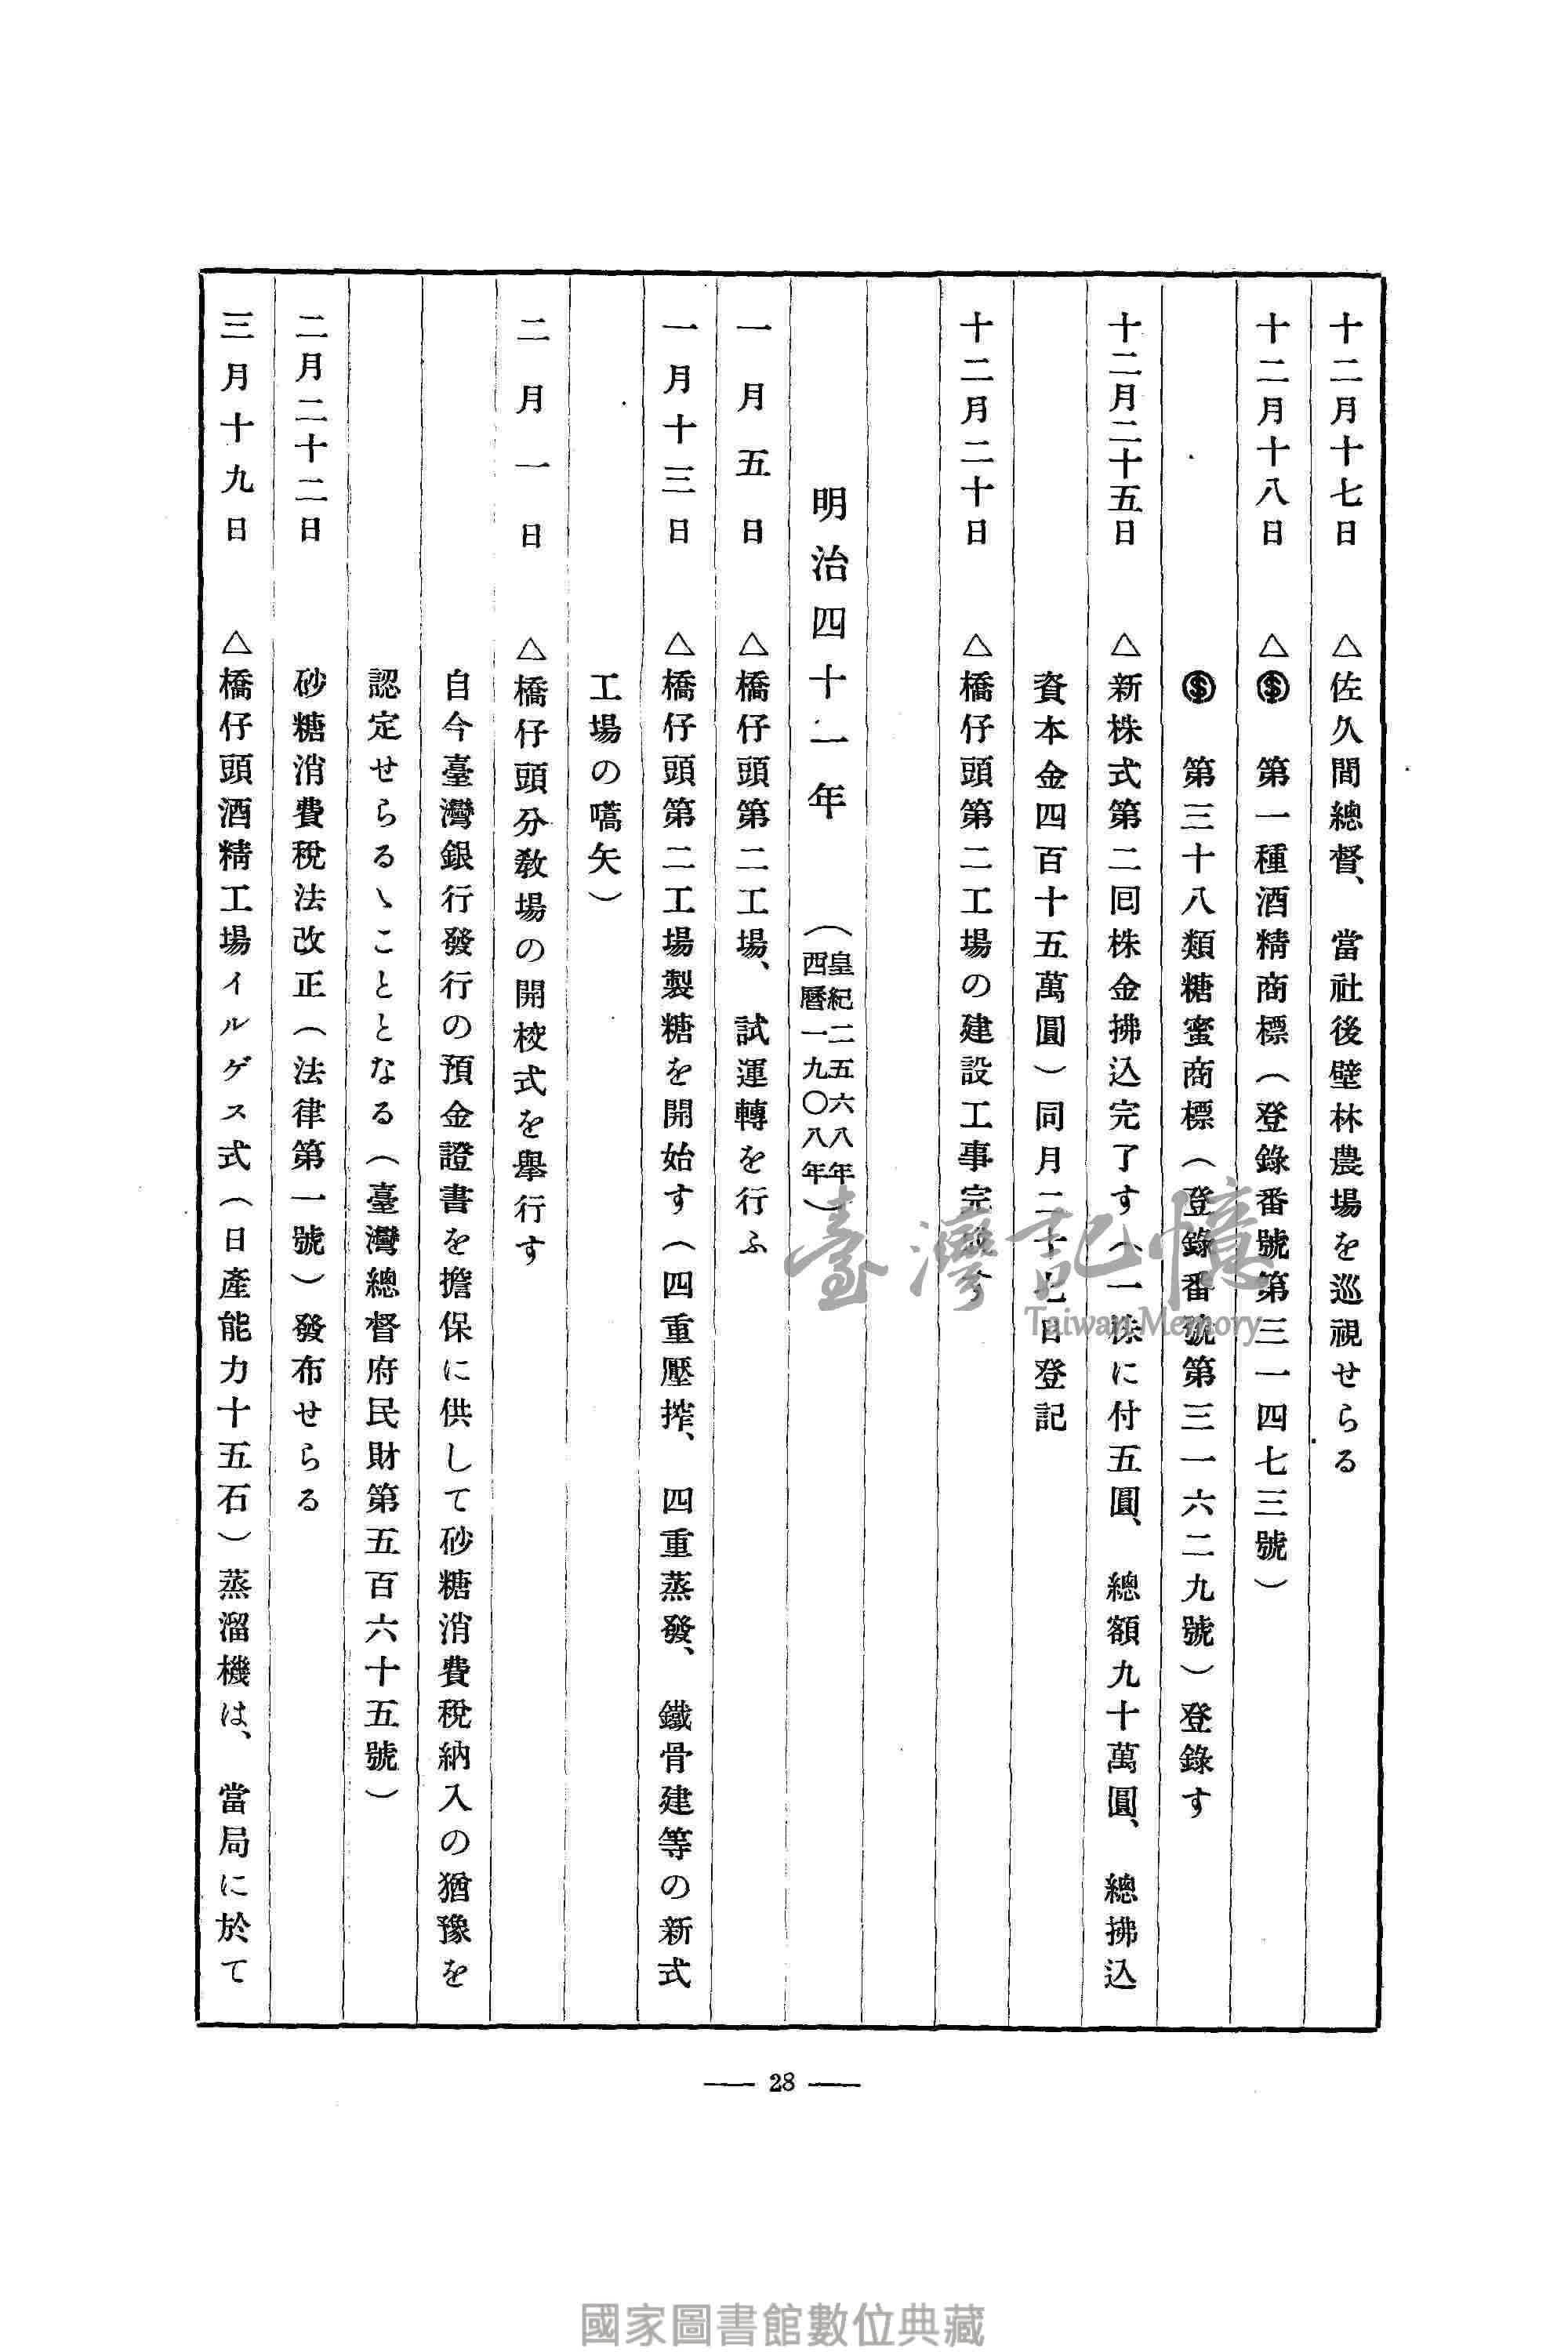 十二月十七日　△佐久間總督、當社後壁林農場を巡視せらる
十二月十八日　△Ⓢ　第一種酒精商標（登錄番號第三一四七三號）
Ⓢ　第三十八類糖蜜商標（登錄番號第三一六二九號）登錄す
十二月二十五日　△新株式第二囘株金拂込完了す（一株に付五圓、總額九十萬圓、總拂込
資本金四百十五萬圓）同月二十七日登記
十二月二十日　△橋仔頭第二工場の建設工事完成す
明治四十一年　（皇紀二五六八年
西曆一九〇八年）
一月五日　△橋仔頭第二工場、試運轉を行ふ
一月十三日　△橋仔頭第二工場製糖を開始す（四重壓搾、四重蒸發、鐵骨建等の新式
工場の嚆矢）
二月一日　△橋仔頭分敎場の開校式を擧行す
自今臺灣銀行發行の預金證書を擔保に供して砂糖消費稅納入の猶豫を
認定せらるゝこととなる（臺灣總督府民財第五百六十五號）
二月二十二日　砂糖消費稅法改正（法律第一號）發布せらる
三月十九日　△橋仔頭酒精工場イルゲス式（日產能力十五石）蒸溜機は、當局に於て
— 28 —
臺灣記憶
Taiwan Memory
國家圖書館數位典藏